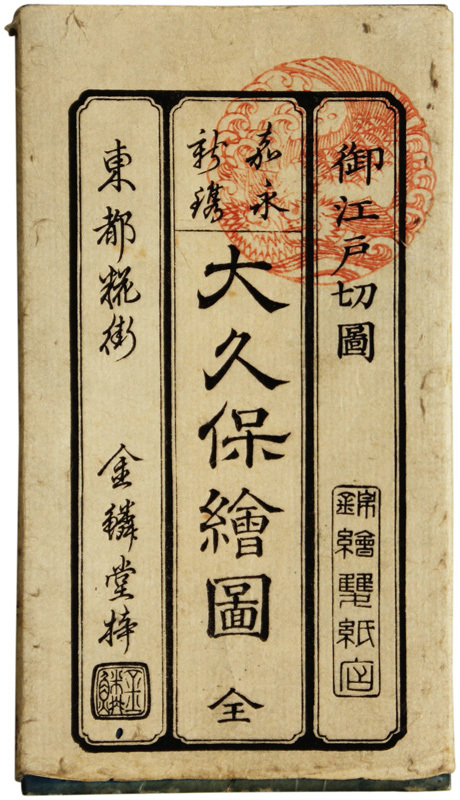 御江戸切圖
錦繪雙紙店
嘉永
新鐫
大久保繪圖 全
東都糀街 金鱗堂梓